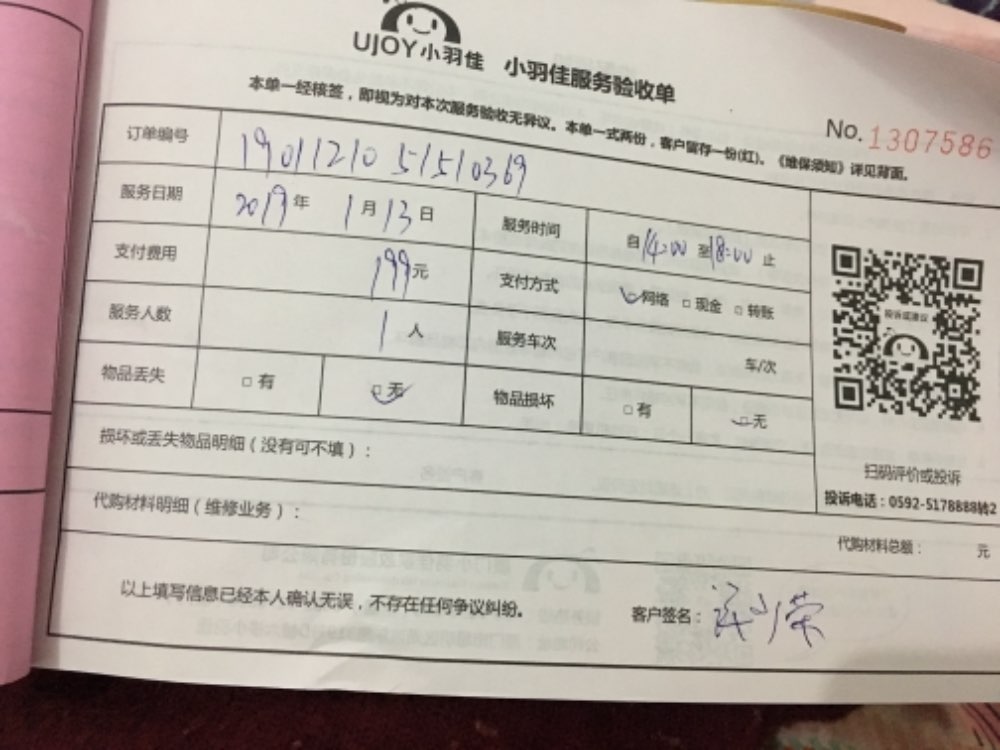 UJOY小羽佳 小羽佳服务验收单
本单一经核签，即视为对本次服务验收无异议。本单一式两份，客户留存一份(红)。《维保须知》详见背面。
No. 1307586
订单编号 1901121051510369
服务日期 2019年 1月13日 服务时间 自14:00至18:00止
支付费用 199元 支付方式 网络 □现金 □转账
服务人数 1人 服务车次 车/次
物品丢失 □有 □无 物品损坏 □有 □无
投诉或建议
损坏或丢失物品明细（没有可不填）：
扫码评价或投诉
投诉电话：0592-5178888转2
代购材料明细（维修业务）：
代购材料总额： 元
以上填写信息已经本人确认无误，不存在任何争议纠纷。 客户签名：